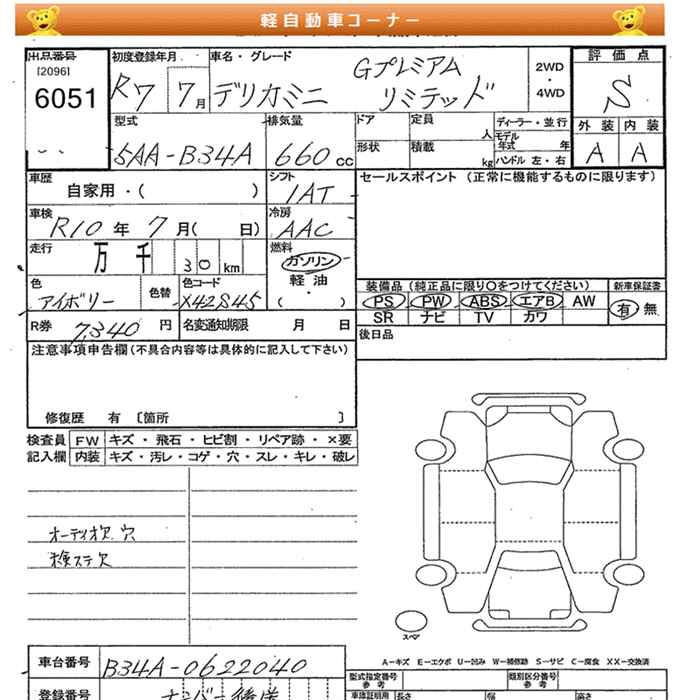 軽自動車コーナー
出品番号
[2096]
6051
初度登録年月
R7 7月
車名・グレード
デリカミニ Gプレミアム
リミテッド
2WD
・
4WD
評価点
S
外装 内装
A A
型式
5AA-B34A
排気量
660 cc
ドア
定員 人
形状
積載 kg
ディーラー・並行
モデル
年式 年
ハンドル 左・右
車歴
自家用・( )
シフト
IAT
車検
R10年 7月( 日)
冷房
AAC
走行
万 千 30 km
燃料
ガソリン
軽油
・
( )
色
アイボリー
色替
色コード
X42845
R券 7,340 円
名変通知期限 月 日
セールスポイント (正常に機能するものに限ります)
装備品 (純正品に限り〇をつけてください)
PS PW ABS エアB AW
SR ナビ TV カワ
新車保証書
有・無
後日品
注意事項申告欄(不具合内容等は具体的に記入して下さい)
修復歴 有 〔箇所 〕
検査員 FW キズ・飛石・ヒビ割・リペア跡・×要
記入欄 内装 キズ・汚レ・コゲ・穴・スレ・キレ・破レ
オーディオ欠 穴
検ステ欠
スペア
A―キズ E―エクボ U―凹み W―補修跡 S―サビ C―腐食 XX―交換済
車台番号 B34A-0622040
登録番号 ナンバー後送
型式指定番号
参考
類別区分番号
参考
車庫証明用 長さ 幅 高さ